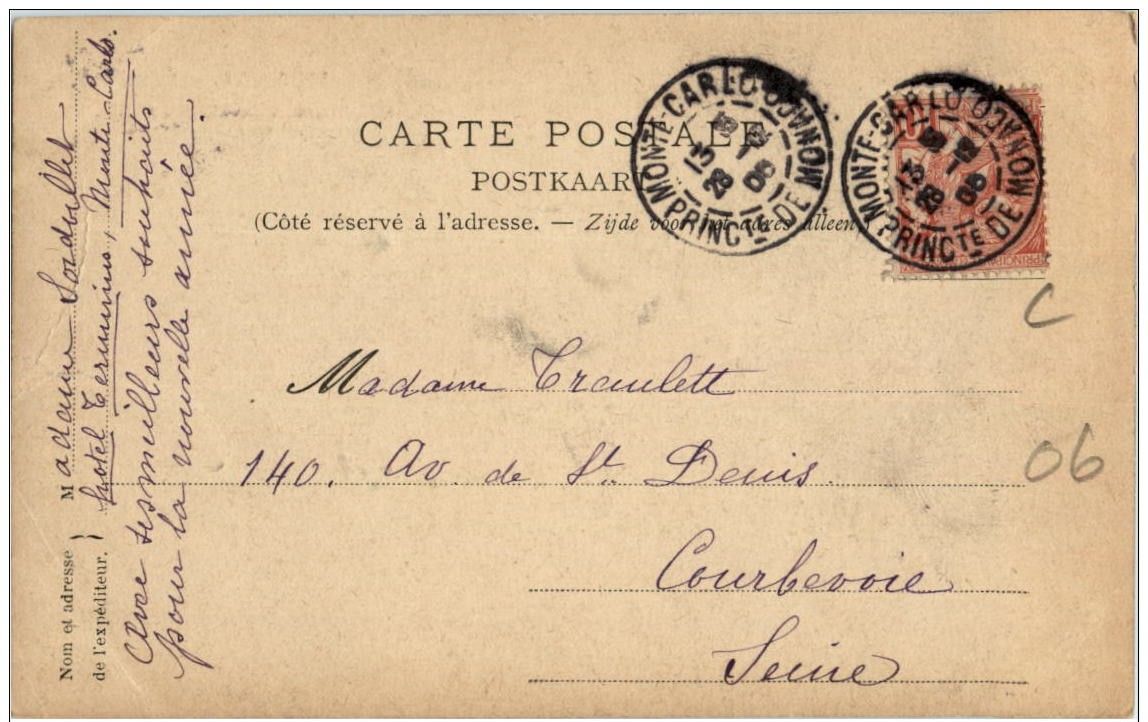 CARTE POSTALE
POSTKAART
(Côté réservé à l'adresse. — Zijde voor het adres alleen)
MONTE-CARLO MONACO
PRINCTE DE
13
28
1
06
MONTE-CARLO MONACO
PRINCTE DE
13
28
1
06
C
06
Madame Traulett
140. Av. de St. Denis.
Courbevoie
Seine
Nom et adresse
de l'expéditeur.
Madame
hotel Terminus, Monte-Carlo.
Avec ses meilleurs souhaits
pour la nouvelle année.